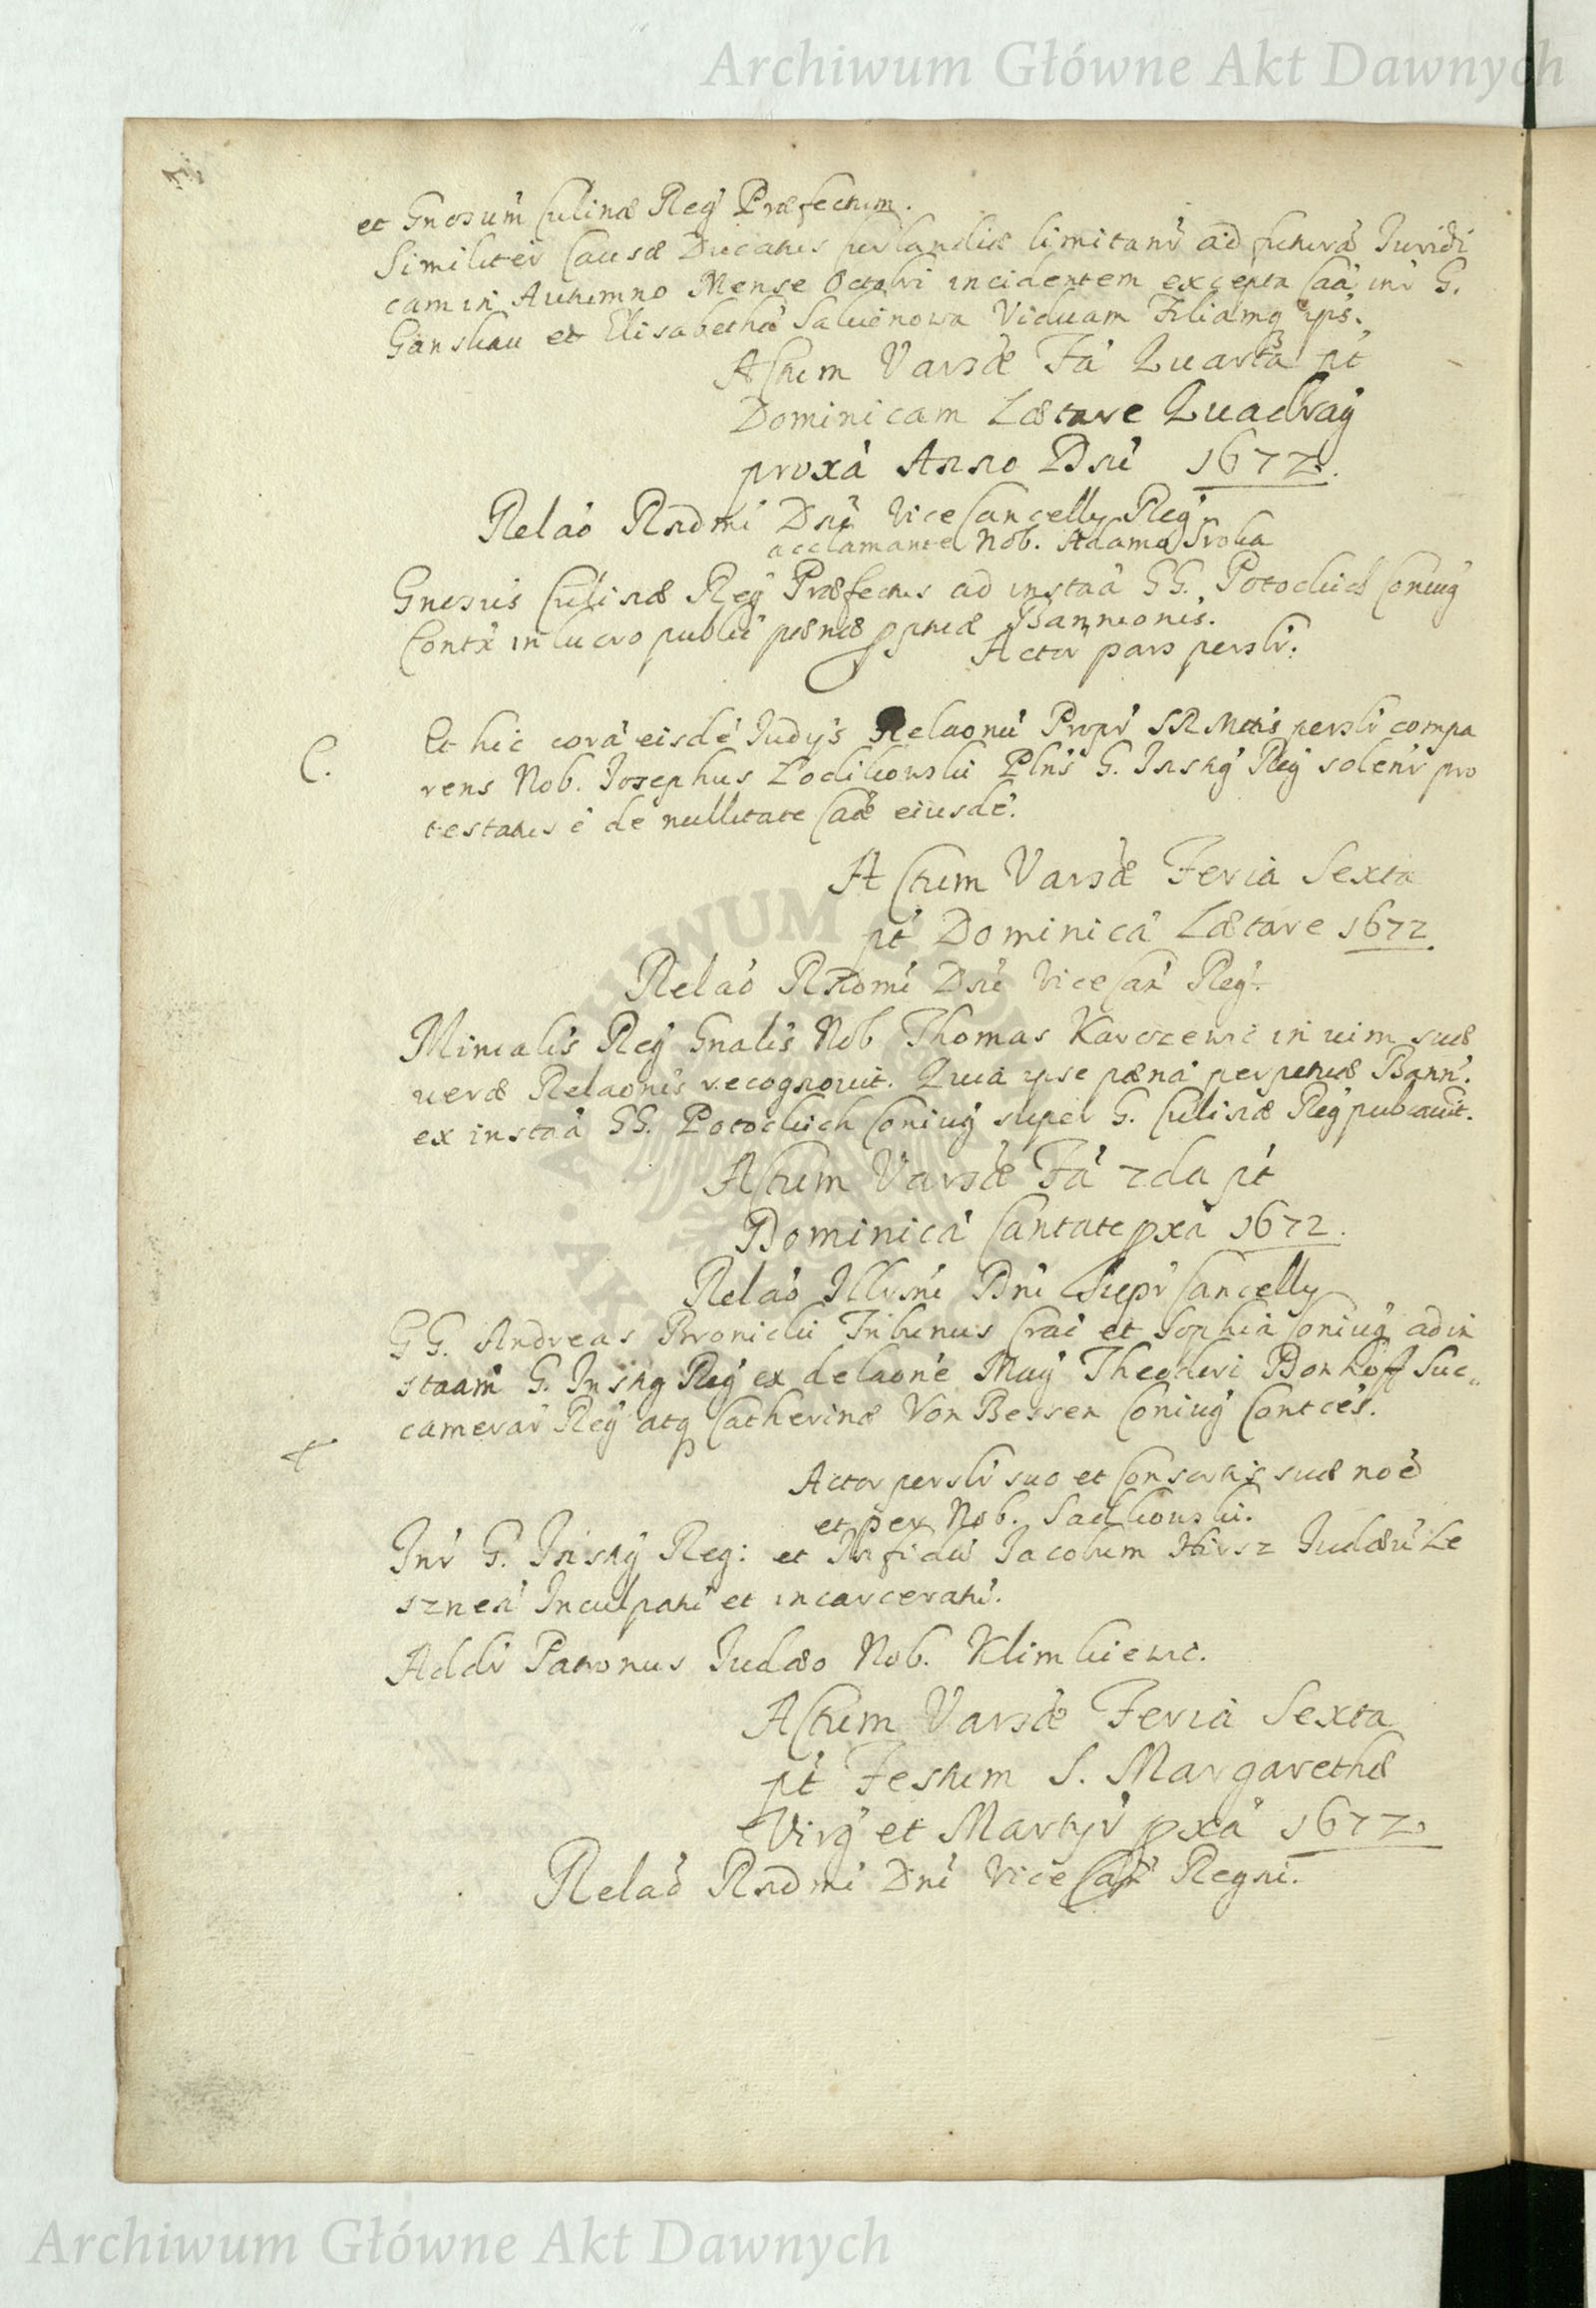 Archiwum Główne Akt Dawnych
et Gnosum Culinæ Regÿ Præfectum.
Similiter Causæ Ducatus Curlandiæ limitant̃ ad futurã Juridi
cam in Autumno Mense Octobri incidentem excepta Caã int̃ G.
Ganskau et Elisabethã Salvenowa Viduam Filiamq̃ ips.
Actum Varsæ Fã Quarta pt̃
Dominicam Lætare Quadragÿ
proxã Anno Dni 1672.
Relaõ Rndmi Dni Vice Cancellÿ Regÿ
acclamante Nob. Adamo Sroka
Gnosus Culinæ Regÿ Præfectus ad instaã GG. Potockich Coniugÿ
Contx̃ in lucro publi pænæ ppetuæ Bannionis.
Actor pars persłr.
C.
Et hic corã eisdẽ Judÿs Relaonũ Propr̃ SRMttis persłr compa
rens Nob. Josephus Lodikowski Plns G. Instigÿ Regÿ solenr̃ pro
testatus ẽ de nullitate Caæ eiusdẽ.
Actum Varsæ Feria Sexta
pt̃ Dominicã Lætare 1672.
Relaõ Rndmi Dni Vice Can̄ Regÿ.
Minialis Regÿ Gnalis Nob Thomas Karczewic in vim suæ
veræ Relaonis recognovit. Quia ipse pænã perpetuæ Bann̄.
ex instaã GG. Potockich Coniugÿ super G. Culinæ Regÿ pubcavit.
Actum Varsæ Fã 2da pt̃
Dominicã Cantate pxã 1672.
Relaõ Illrsni Dni Supr̃ Cancellÿ
GG. Andreas Pronicki Tribunus Crac et Sophia Coniugÿ ad in
staam G. Instigÿ Regÿ ex delaone Magÿ Theodori Donhoff Suc„
camerar̃ Regÿ atq̃ Catherinæ Von Bessen Coniugÿ Contces.
Actor persłr suo et Consortis suæ noẽ
et per Nob. Sadkowski.
Int̃ G. Instigÿ Reg: et Infidũ Jacobum Hirsz Judæũ Le
sznen̄ Inculpatũ et incarceratũ.
Addr̃ Patronus Judæo Nob. Klimkiewic.
Actum Varsæ Feria Sexta
pt̃ Festum S. Margarethæ
Virgÿ et Martÿr̃ pxã 1672.
Relaõ Rndmi Dni Vice Can̄ Regni.
Archiwum Główne Akt Dawnych